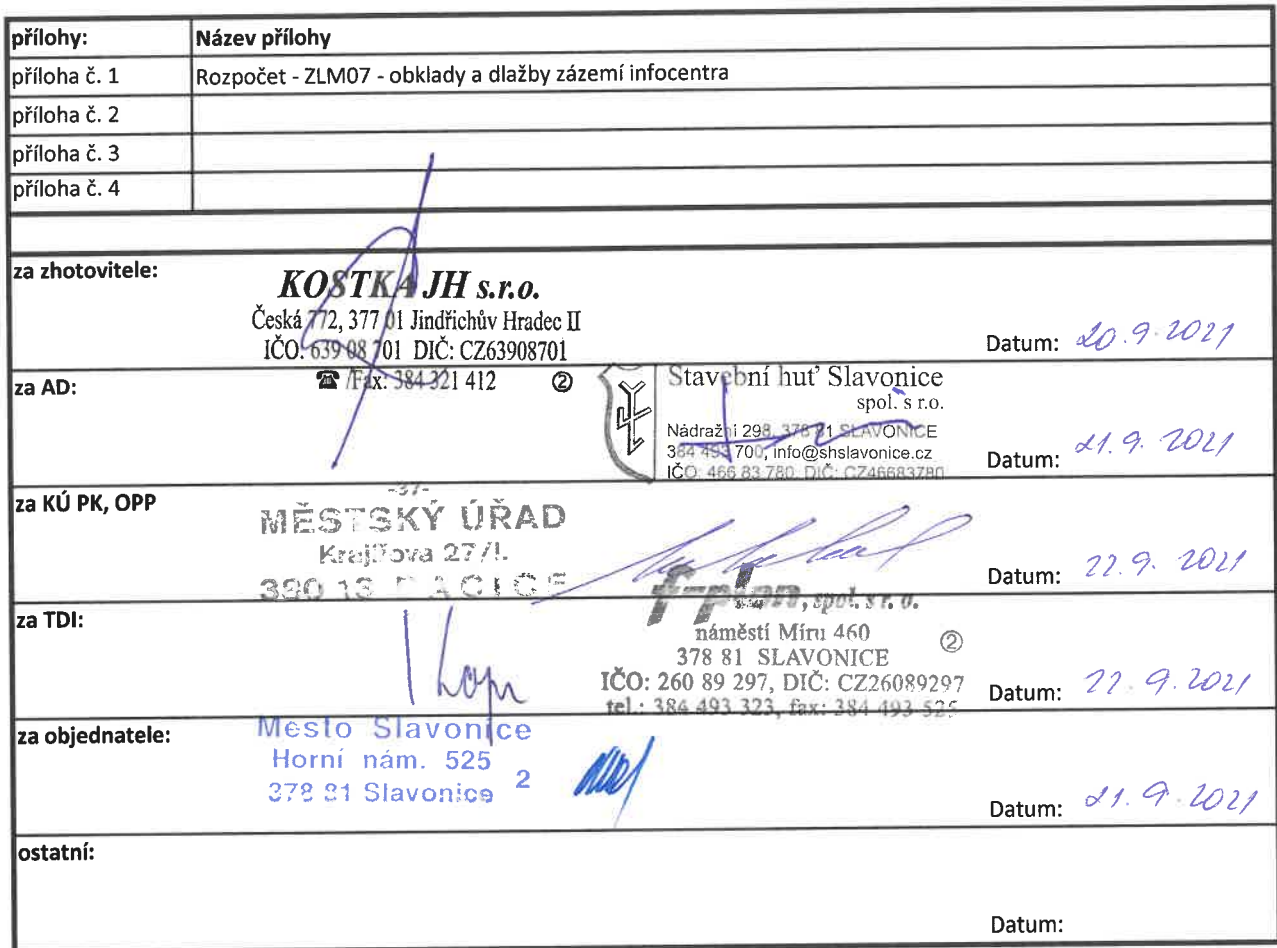 přílohy: Název přílohy
příloha č. 1 Rozpočet - ZLM07 - obklady a dlažby zázemí infocentra
příloha č. 2
příloha č. 3
příloha č. 4
za zhotovitele:
KOSTKA JH s.r.o.
Česká 772, 377 01 Jindřichův Hradec II
IČO: 639 08 701 DIČ: CZ63908701
☎ /Fax: 384 321 412 ②
Datum: 20.9.2021
za AD:
Stavební huť Slavonice
spol. s r.o.
Nádražní 298, 378 81 SLAVONICE
384 493 700, info@shslavonice.cz
IČO: 466 83 780 DIČ: CZ46683780
Datum: 21.9.2021
za KÚ PK, OPP
-37-
MĚSTSKÝ ÚŘAD
Krajířova 27/I.
380 13 DAČICE
Datum: 22.9.2021
za TDI:
f-plan, spol. s r. o.
náměstí Míru 460 ②
378 81 SLAVONICE
IČO: 260 89 297, DIČ: CZ26089297
tel.: 384 493 323, fax: 384 493 525
Datum: 22.9.2021
za objednatele:
Mesto Slavonice
Horní nám. 525
378 81 Slavonice 2
Datum: 21.9.2021
ostatní:
Datum: